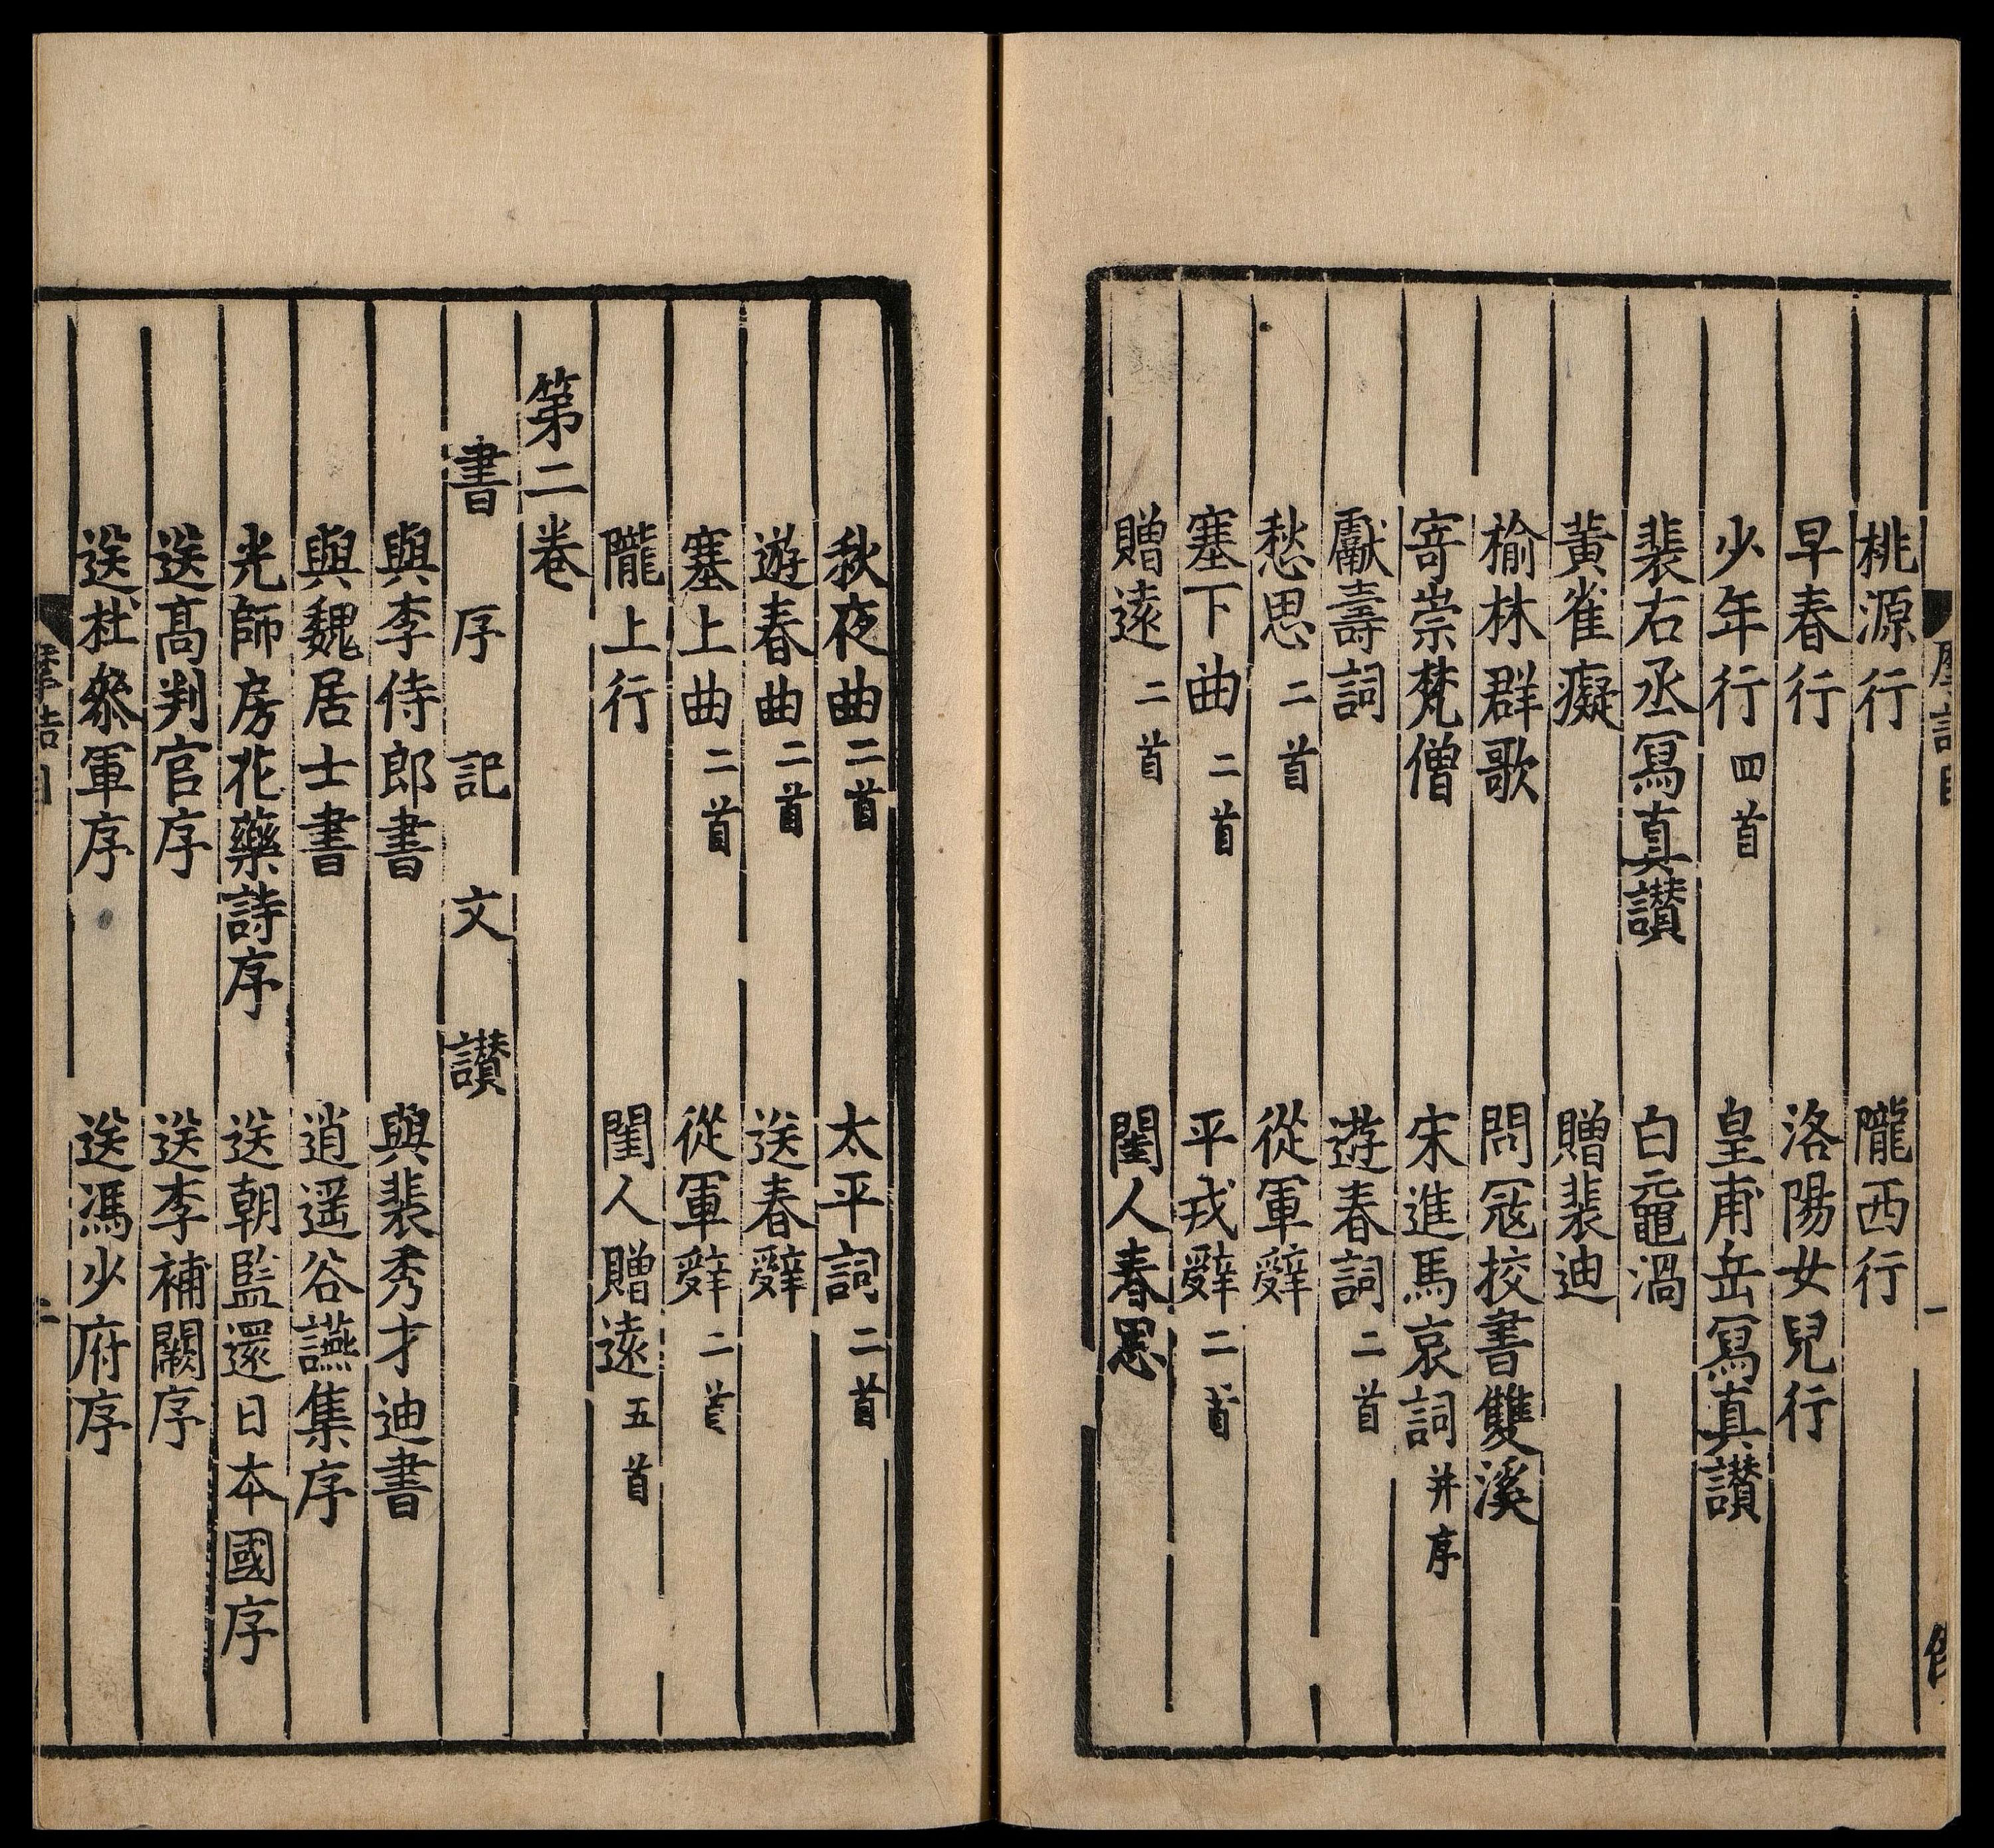 桃源行　隴西行
早春行　洛陽女兒行
少年行四首　皇甫岳冩真讃
裴右丞冩真讃　白黿渦
黃雀癡　贈裴迪
榆林郡歌　問冦挍書雙溪
寄崇梵僧　宋進馬哀詞并序
獻壽詞　遊春詞二首
愁思二首　從軍辤
塞下曲二首　平戎辤二首
贈逺二首　閨人春思
秋夜曲二首　太平詞二首
遊春曲二首　送春辤
塞上曲二首　從軍辤二首
隴上行　閨人贈逺五首
第二卷
書　序　記　文　讃
與李侍郎書　與裴秀才迪書
與魏居士書　逍遥谷讌集序
光師房花藥詩序　送朝監還日本國序
送髙判官序　送李補闕序
送杜叅軍序　送馮少府序